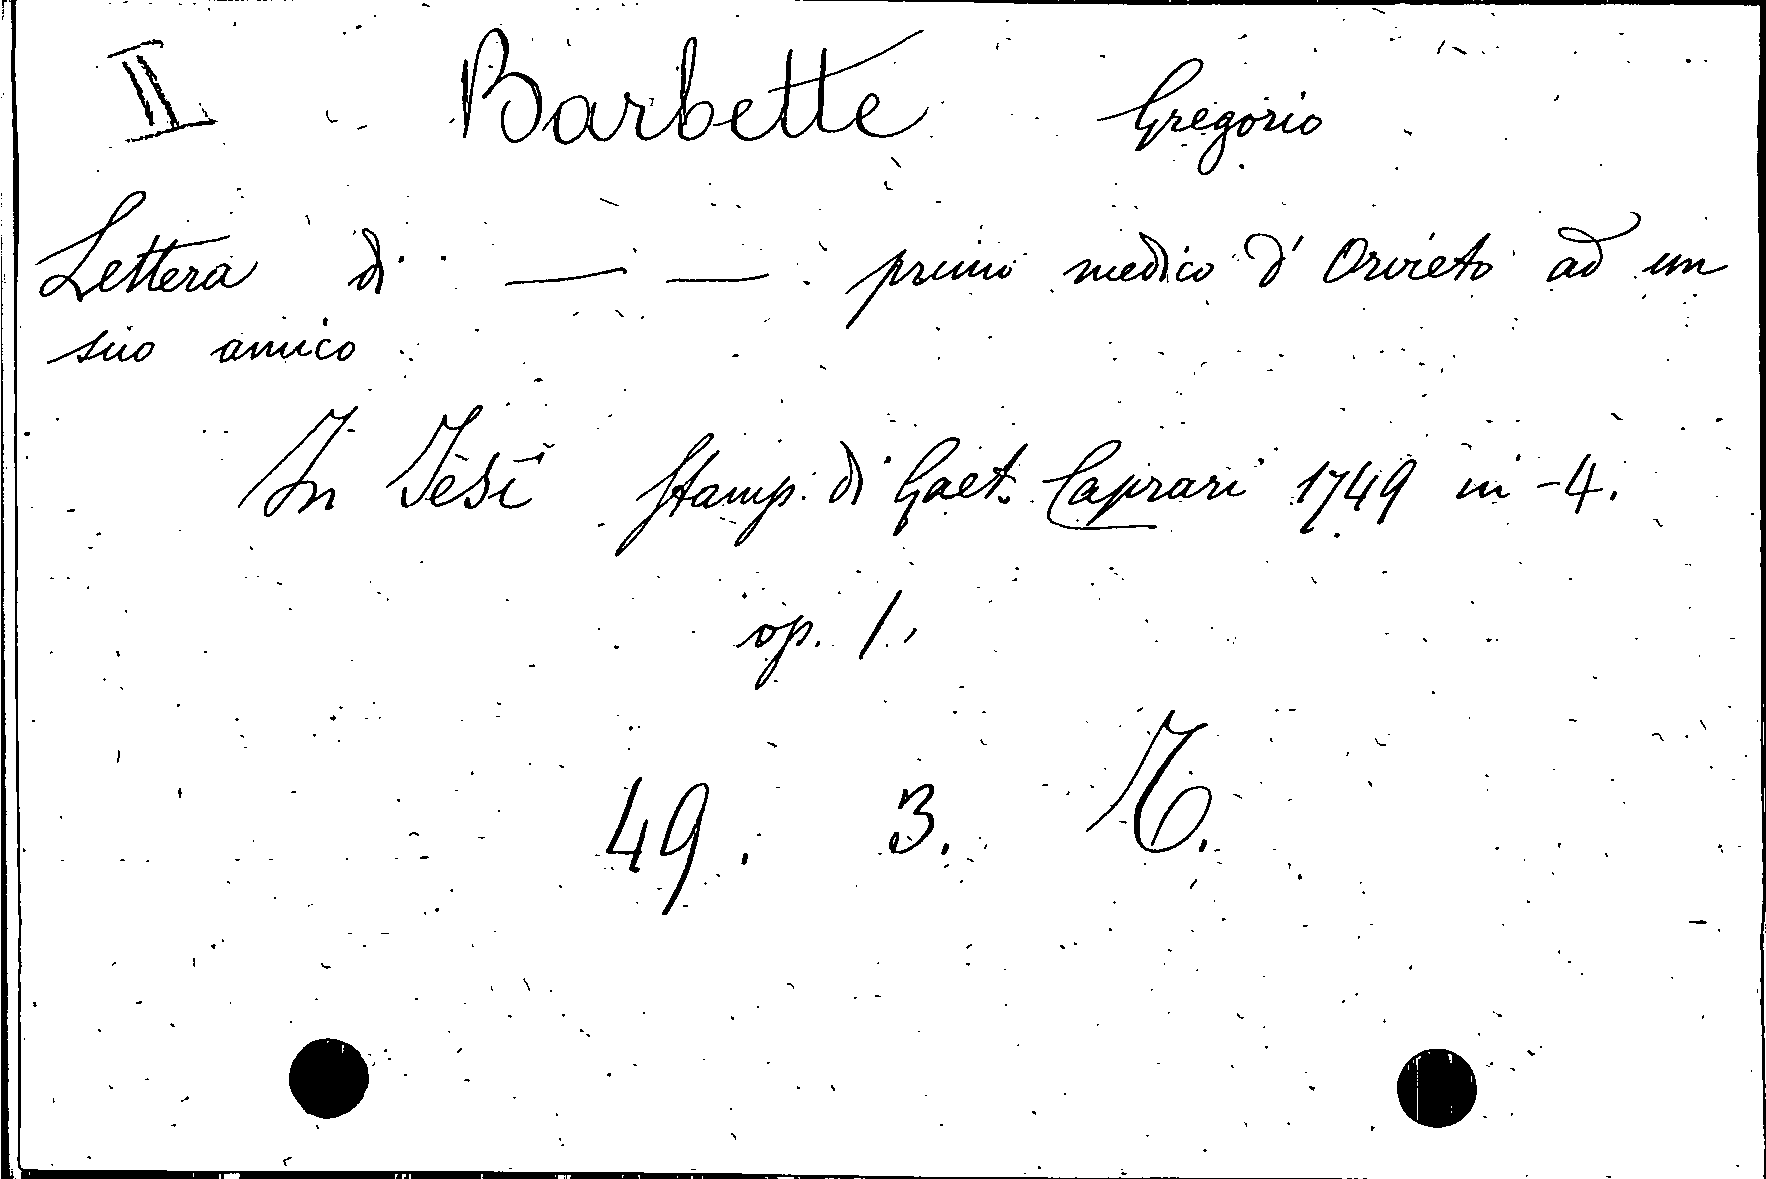 II Barbette Gregorio
Lettera di — — primo medico d' Orvieto ad un
suo amico
In Jesi Stamp. di Gaet. Caprari 1749 in-4.
op. 1.
49. 3.